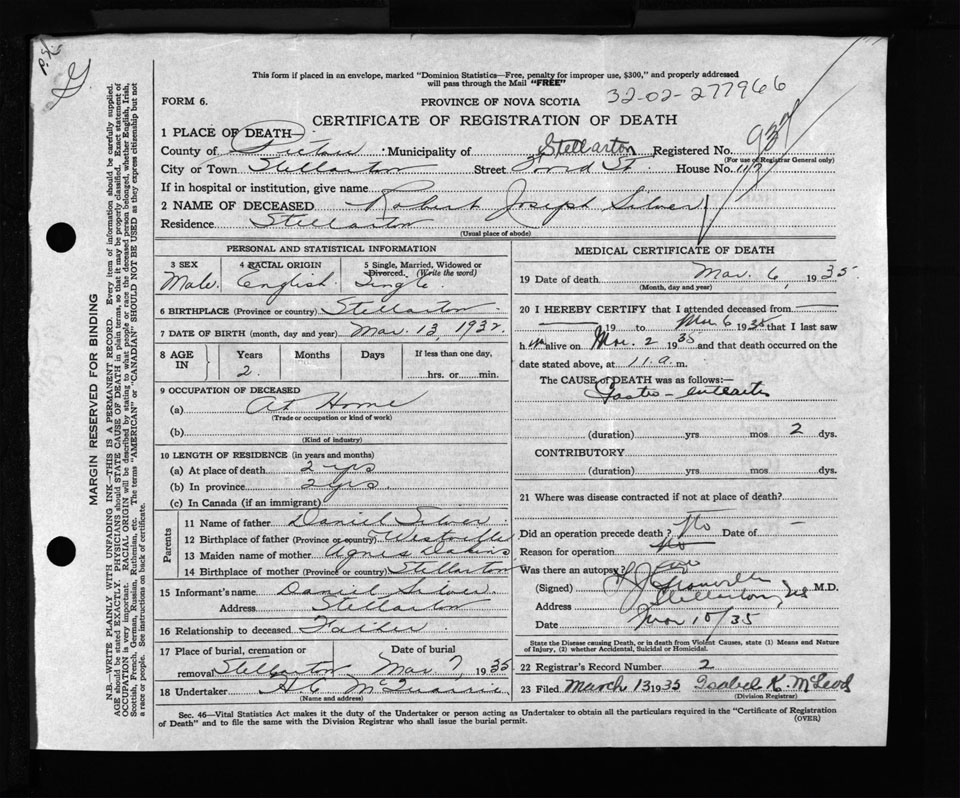 This form if placed in an envelope, marked "Dominion Statistics—Free, penalty for improper use, $300," and properly addressed
will pass through the Mail "FREE"
32-02-277966
FORM 6.
PROVINCE OF NOVA SCOTIA
CERTIFICATE OF REGISTRATION OF DEATH
1 PLACE OF DEATH—
County of Pictou Municipality of Stellarton Registered No. 937
(For use of Registrar General only)
City or Town Stellarton Street Foord St House No.
If in hospital or institution, give name
2 NAME OF DECEASED Robert Joseph Silver
Residence Stellarton
(Usual place of abode)
PERSONAL AND STATISTICAL INFORMATION
3 SEX 4 RACIAL ORIGIN 5 Single, Married, Widowed or Divorced. (Write the word)
Male. English Single.
6 BIRTHPLACE (Province or country) Stellarton
7 DATE OF BIRTH (month, day and year) Mar. 13, 1932.
8 AGE IN Years Months Days If less than one day,
2. hrs. or min.
9 OCCUPATION OF DECEASED
(a) At Home
(Trade or occupation or kind of work)
(b)
(Kind of industry)
10 LENGTH OF RESIDENCE (in years and months)
(a) At place of death 2 yrs
(b) In province 2 yrs.
(c) In Canada (if an immigrant)
Parents
11 Name of father Daniel Silver
12 Birthplace of father (Province or country) Westville
13 Maiden name of mother Agnes
14 Birthplace of mother (Province or country) Stellarton
15 Informant's name Daniel Silver
Address Stellarton
16 Relationship to deceased Father.
17 Place of burial, cremation or removal Stellarton Date of burial Mar 7, 1935
18 Undertaker McQuarrie
(Name and address)
MEDICAL CERTIFICATE OF DEATH
19 Date of death Mar. 6, 1935
(Month, day and year)
20 I HEREBY CERTIFY that I attended deceased from
19 to Mar 6 1935 that I last saw
h im alive on Mar. 2 1935 and that death occurred on the
date stated above, at 11 a. m.
The CAUSE of DEATH was as follows:—
Gastro-enteritis
(duration) yrs mos 2 dys.
CONTRIBUTORY
(duration) yrs. mos dys.
21 Where was disease contracted if not at place of death?
Did an operation precede death? No Date of —
Reason for operation
Was there an autopsy?
(Signed) M.D.
Address Stellarton, N.S
Date Mar 10/35
State the Disease causing Death, or in death from Violent Causes, state (1) Means and Nature
of Injury, (2) whether Accidental, Suicidal or Homicidal.
22 Registrar's Record Number 2
23 Filed March 13 1935 Isabel K. McLeod
(Division Registrar)
Sec. 46—Vital Statistics Act makes it the duty of the Undertaker or person acting as Undertaker to obtain all the particulars required in the "Certificate of Registration
of Death" and to file the same with the Division Registrar who shall issue the burial permit.
(OVER)
MARGIN RESERVED FOR BINDING
N.B.—WRITE PLAINLY WITH UNFADING INK—THIS IS A PERMANENT RECORD. Every item of information should be carefully supplied.
AGE should be stated EXACTLY. PHYSICIANS should STATE CAUSE OF DEATH in plain terms, so that it may be properly classified. Exact statement of
OCCUPATION is very important. RACIAL ORIGIN will be described by stating to what people or race the deceased person belonged, whether English, Irish,
Scottish, French, German, Russian, Ruthenian, etc. The terms "AMERICAN" or "CANADIAN" SHOULD NOT BE USED as they express citizenship but not
a race or people. See instructions on back of certificate.